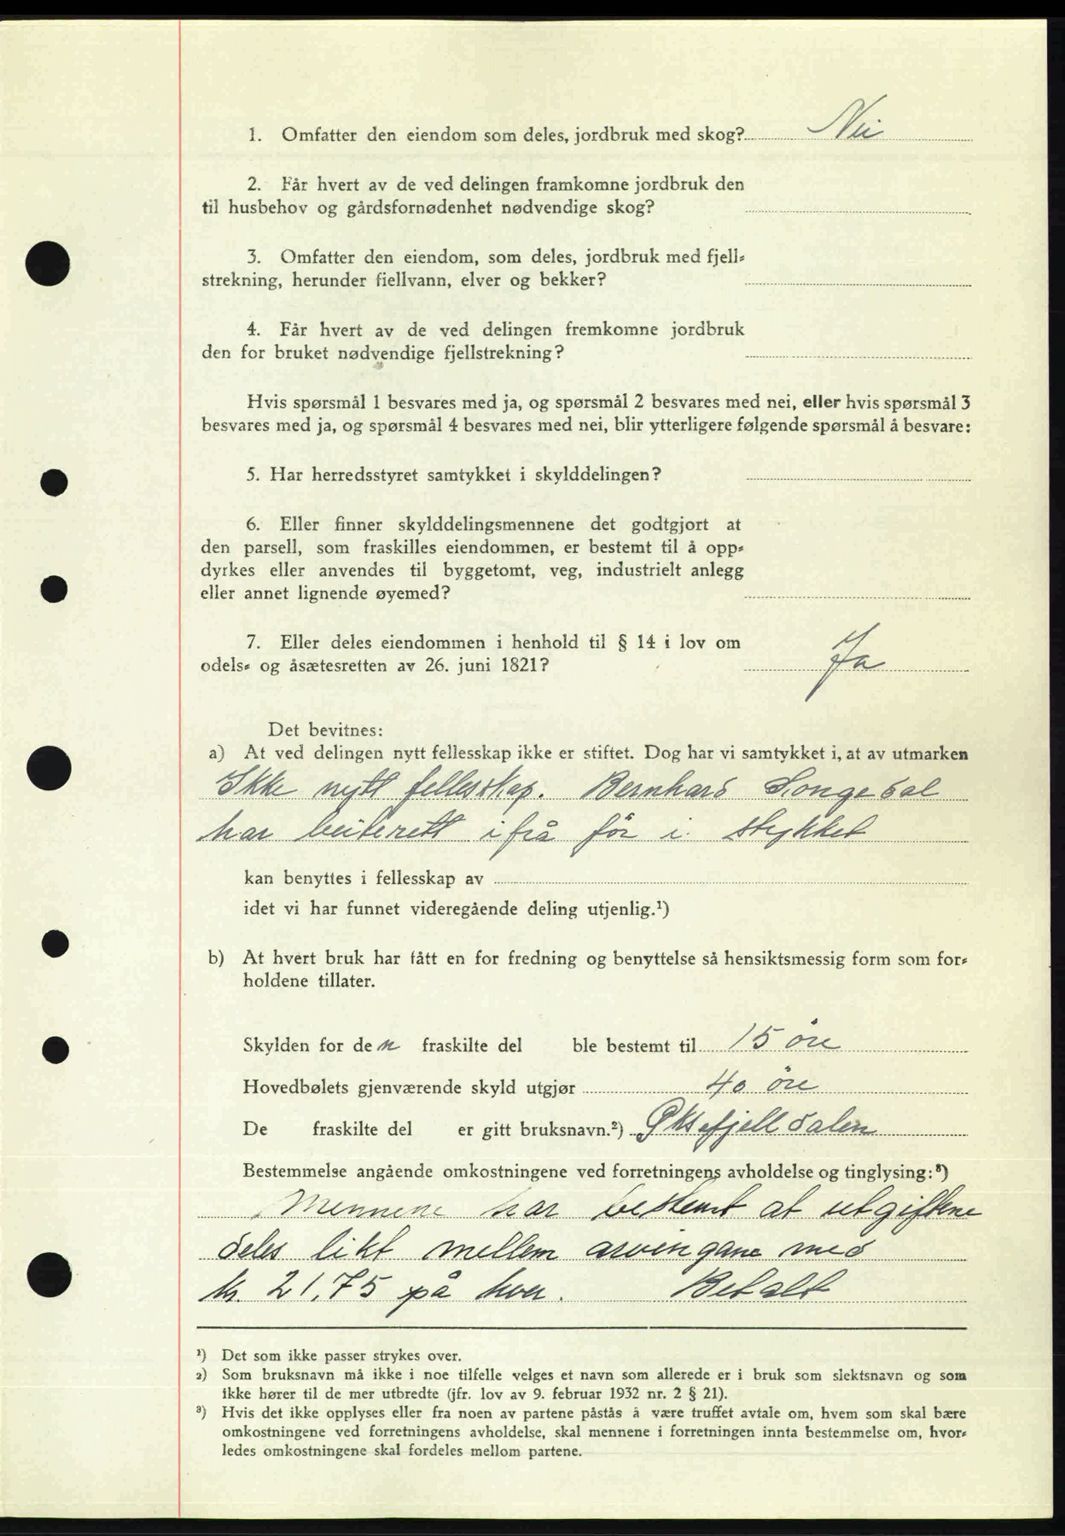 1. Omfatter den eiendom som deles, jordbruk med skog? Nei
2. Får hvert av de ved delingen framkomne jordbruk den
til husbehov og gårdsfornødenhet nødvendige skog?
3. Omfatter den eiendom, som deles, jordbruk med fjell-
strekning, herunder fiellvann, elver og bekker?
4. Får hvert av de ved delingen fremkomne jordbruk
den for bruket nødvendige fjellstrekning?
Hvis spørsmål 1 besvares med ja, og spørsmål 2 besvares med nei, eller hvis spørsmål 3
besvares med ja, og spørsmål 4 besvares med nei, blir ytterligere følgende spørsmål å besvare:
5. Har herredsstyret samtykket i skylddelingen?
6. Eller finner skylddelingsmennene det godtgjort at
den parsell, som fraskilles eiendommen, er bestemt til å opp-
dyrkes eller anvendes til byggetomt, veg, industrielt anlegg
eller annet lignende øyemed?
7. Eller deles eiendommen i henhold til § 14 i lov om
odels- og åsætesretten av 26. juni 1821? Ja
Det bevitnes:
a) At ved delingen nytt fellesskap ikke er stiftet. Dog har vi samtykket i, at av utmarken
Ikke nytt fellesskap. Bernhard Longedal
har beiterett ifrå før i stykket
kan benyttes i fellesskap av
idet vi har funnet videregående deling utjenlig.¹)
b) At hvert bruk har fått en for fredning og benyttelse så hensiktsmessig form som for-
holdene tillater.
Skylden for den fraskilte del ble bestemt til 15 øre
Hovedbølets gjenværende skyld utgjør 40 øre
De fraskilte del er gitt bruksnavn.²) Oksefjelldalen
Bestemmelse angående omkostningene ved forretningens avholdelse og tinglysing:³)
Mennene har bestemt at utgiftene
deles likt mellem arvingane med
kr. 21,75 på hver. Betalt
¹) Det som ikke passer strykes over.
²) Som bruksnavn må ikke i noe tilfelle velges et navn som allerede er i bruk som slektsnavn og som
ikke hører til de mer utbredte (jfr. lov av 9. februar 1932 nr. 2 § 21).
³) Hvis det ikke opplyses eller fra noen av partene påstås å være truffet avtale om, hvem som skal bære
omkostningene ved forretningens avholdelse, skal mennene i forretningen innta bestemmelse om, hvor-
ledes omkostningene skal fordeles mellom partene.